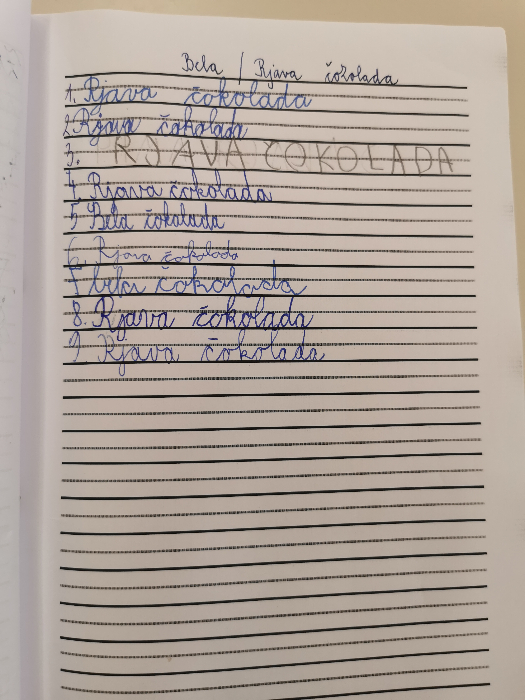 Bela / Rjava čokolada
1. Rjava čokolada
2. Rjava čokolada
3. RJAVA ČOKOLADA
4. Rjava čokolada
5. Bela čokolada
6. Rjava čokolada
7. bela čokolada
8. Rjava čokolada
9. Rjava čokolada